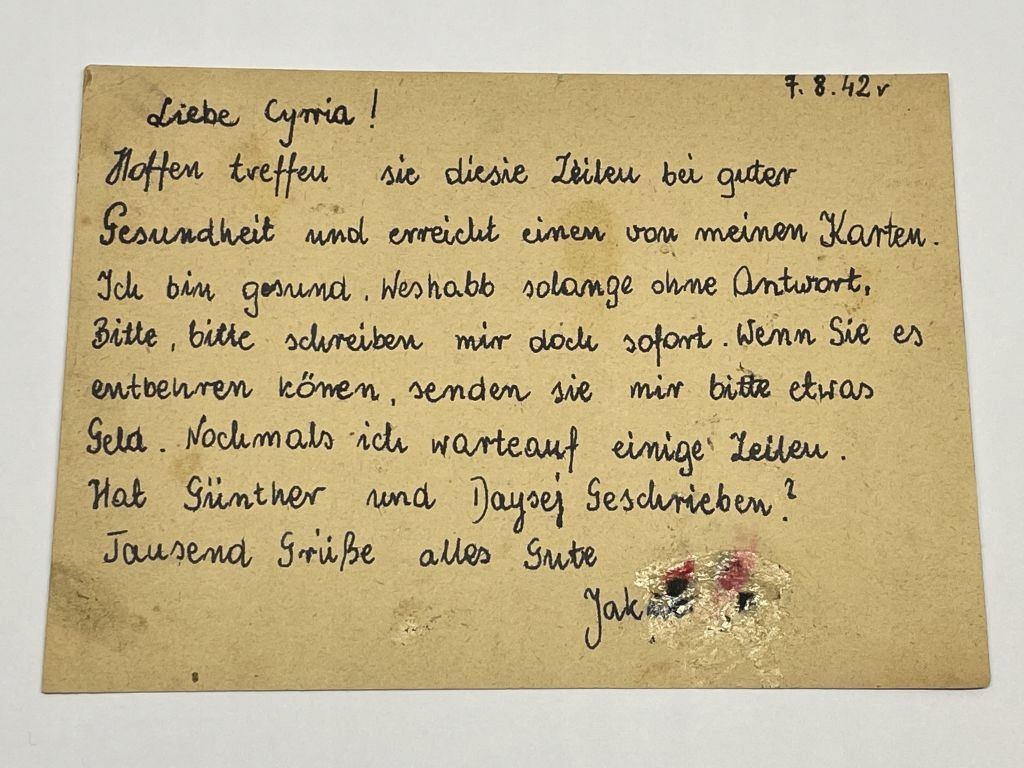 7.8.42 r
Liebe Cyrria!
Hoffen treffen sie diesie Zeilen bei guter
Gesundheit und erreicht einen von meinen Karten.
Ich bin gesund. Weshabb solange ohne Antwort,
Bitte, bitte schreiben mir doch sofort. Wenn Sie es
entbehren könen, senden sie mir bitte etwas
Geld. Nochmals ich warteauf einige Zeilen.
Hat Günther und Daysej Geschrieben?
Tausend Grüße alles Gute